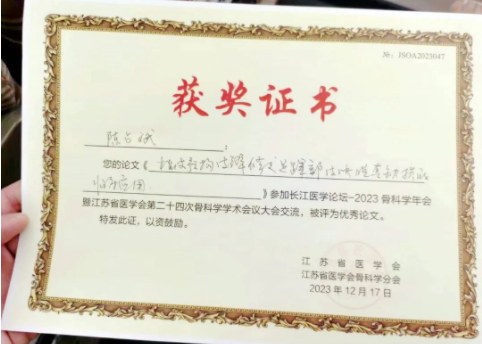 №: JSOA2023047
获奖证书
陈
您的论文《
临床应用
》参加长江医学论坛-2023骨科学年会
暨江苏省医学会第二十四次骨科学学术会议大会交流，被评为优秀论文。
特发此证，以资鼓励。
江苏省医学会
江苏省医学会骨科学分会
2023年12月17日